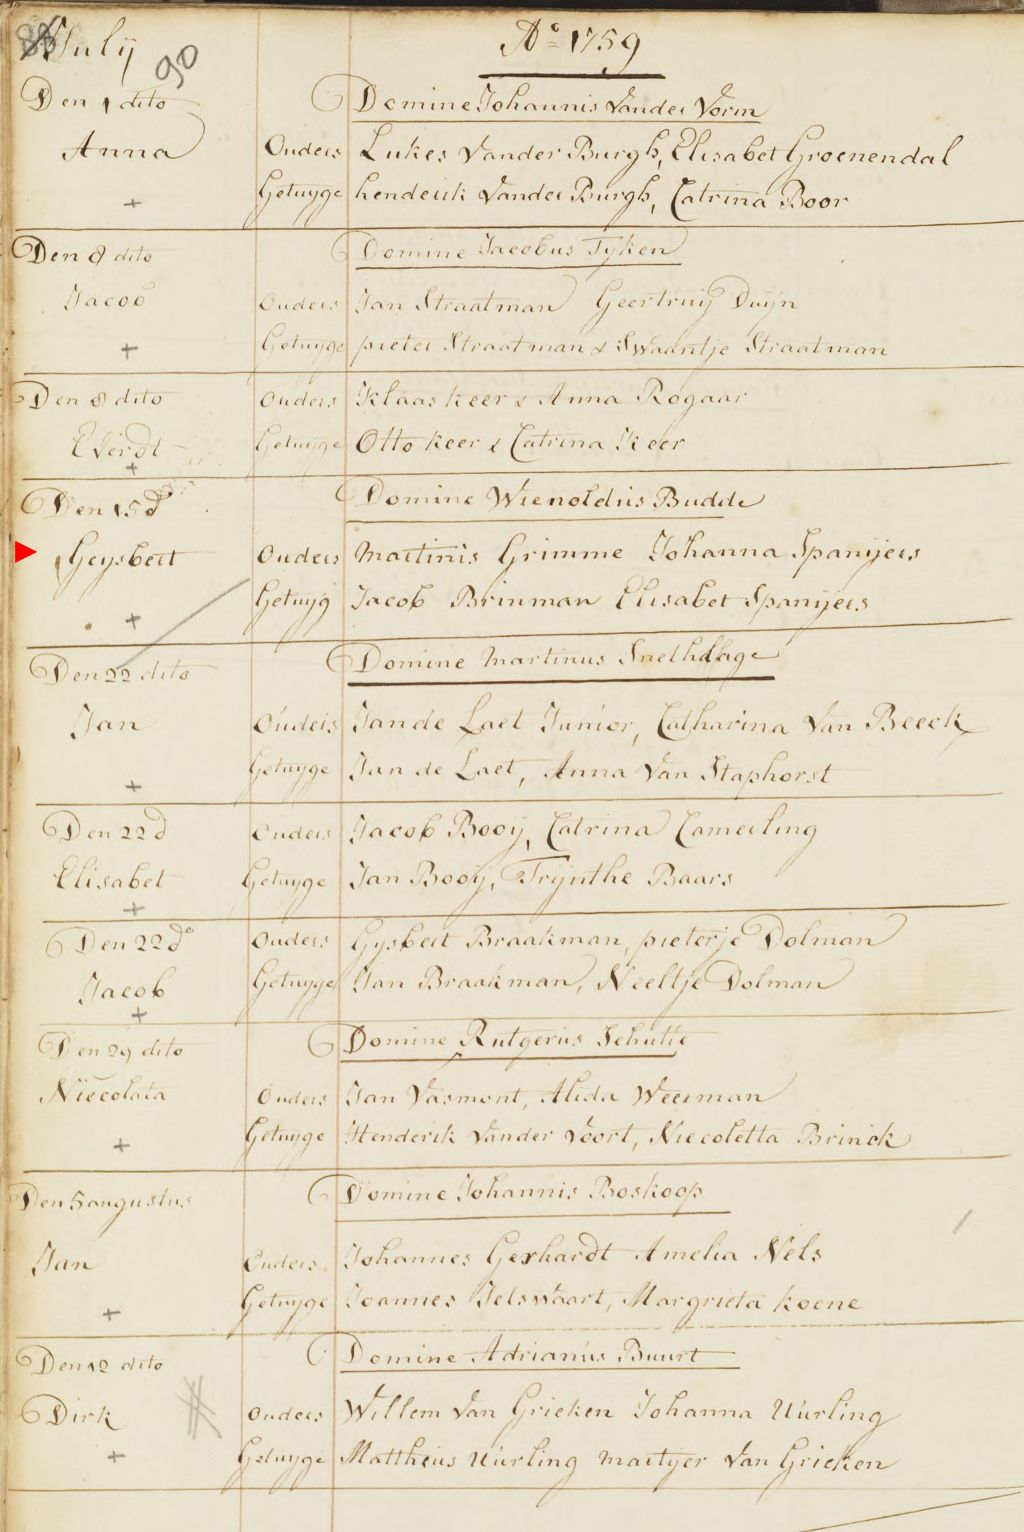 July Aº 1759
90
Den 1 dito Domine Johannis Vander Vorm
Anna Ouders Lukes Vander Burgh, Elisabet Groenendal
+ Getuyge henderik Vander Burgh, Catrina Boor
Den 8 dito Domine Jacobus Tyken
Jacob Ouders Jan Straatman Geertruij Duijn
+ Getuyge pieter Straatman & Swaantje Straatman
Den 8 dito Ouders Klaas Keer & Anna Rogaar
Everdt Getuyge Otto Keer & Catrina Keer
+
Den 15 d Domine Wienoldus Budde
Geysbert Ouders Martinis Grimme Johanna Spanijers
+ Getuyg Jacob Brinman Elisabet Spanijers
Den 22 dito Domine Martinus Snethlage
Jan Ouders Jan de Laet Junior, Catharina Van Beeck
+ Getuyge Jan de Laet, Anna Van Staphorst
Den 22 d Ouders Jacob Booij, Catrina Camerling
Elisabet Getuyge Jan Booij, Trijnthe Baars
+
Den 22 dº Ouders Gysbert Braakman, pieterje Dolman
Jacob Getuyge Jan Braakman, Neeltje Dolman
+
Den 29 dito Domine Rutgerus Schutte
Niecolata Ouders Jan Vasmont, Alida Weerman
+ Getuyge Henderik Vander Voort, Niecoletta Brinck
Den 5 augustus Domine Johannis Boskoop
Jan Ouders Johannes Gerhardt Amelia Nels
+ Getuyge Joannes Jelswaart, Margrieta Koene
Den 12 dito Domine Adrianus Buurt
Dirk Ouders Willem Van Grieken Johanna Uurling
+ Getuyge Mattheus Uurling Martyer Van Grieken